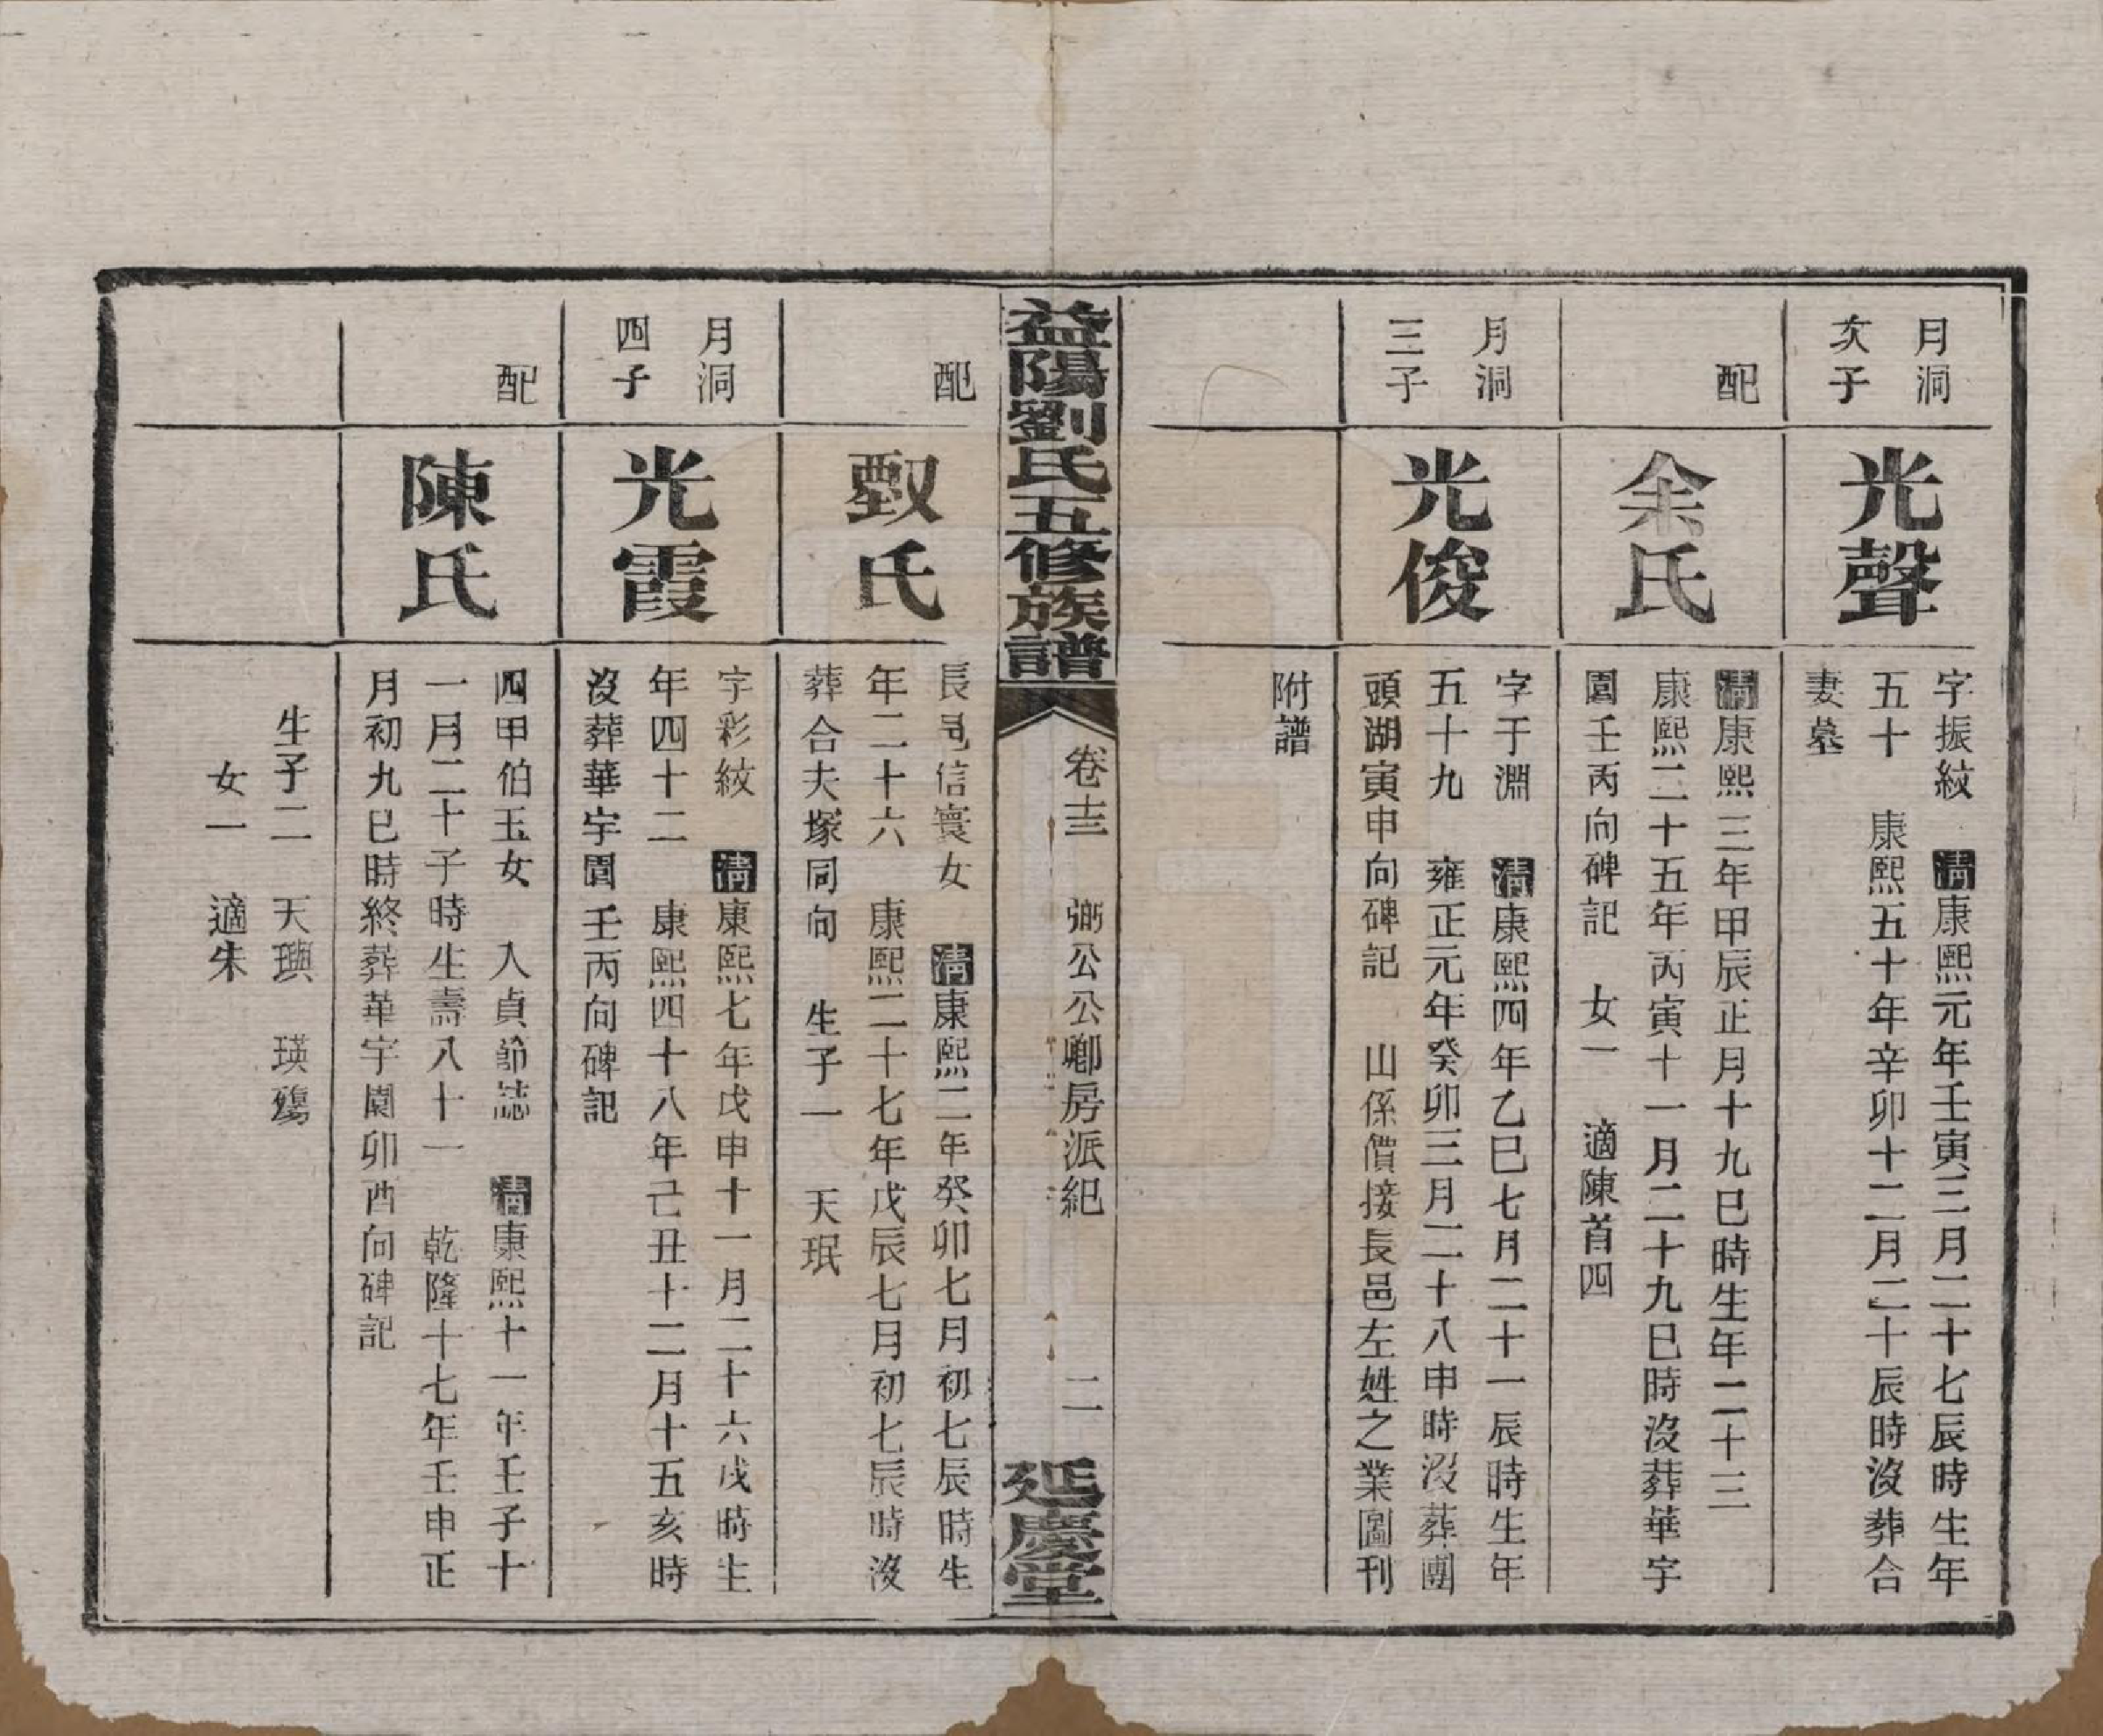 月洞
次子
光聲
字振紋　清康熙元年壬寅三月二十七辰時生年
五十　康熙五十年辛卯十二月二十辰時沒葬合
妻墓
配
余氏
清康熙三年甲辰正月十九巳時生年二十三
康熙二十五年丙寅十一月二十九巳時沒葬華宇
園壬丙向碑記　女一　適陳首四
月洞
三子
光俊
字于淵　清康熙四年乙巳七月二十一辰時生年
五十九　雍正元年癸卯三月二十八申時沒葬團
頭湖寅申向碑記　山係價接長邑左姓之業圖刊
附譜
益陽劉氏五修族譜
卷十三　弼公公卿房派紀　二
延慶堂
配
甄氏
長邑信寰女　清康熙二年癸卯七月初七辰時生
年二十六　康熙二十七年戊辰七月初七辰時沒
葬合夫塚同向　生子一　天珉
月洞
四子
光霞
字彩紋　清康熙七年戊申十一月二十六戌時生
年四十二　康熙四十八年己丑十二月十五亥時
沒葬華宇園壬丙向碑記
配
陳氏
四甲伯玉女　入貞節誌　清康熙十一年壬子十
一月二十子時生壽八十一　乾隆十七年壬申正
月初九巳時終葬華宇園卯酉向碑記
生子二　天璵　瑛殤
女一　適朱